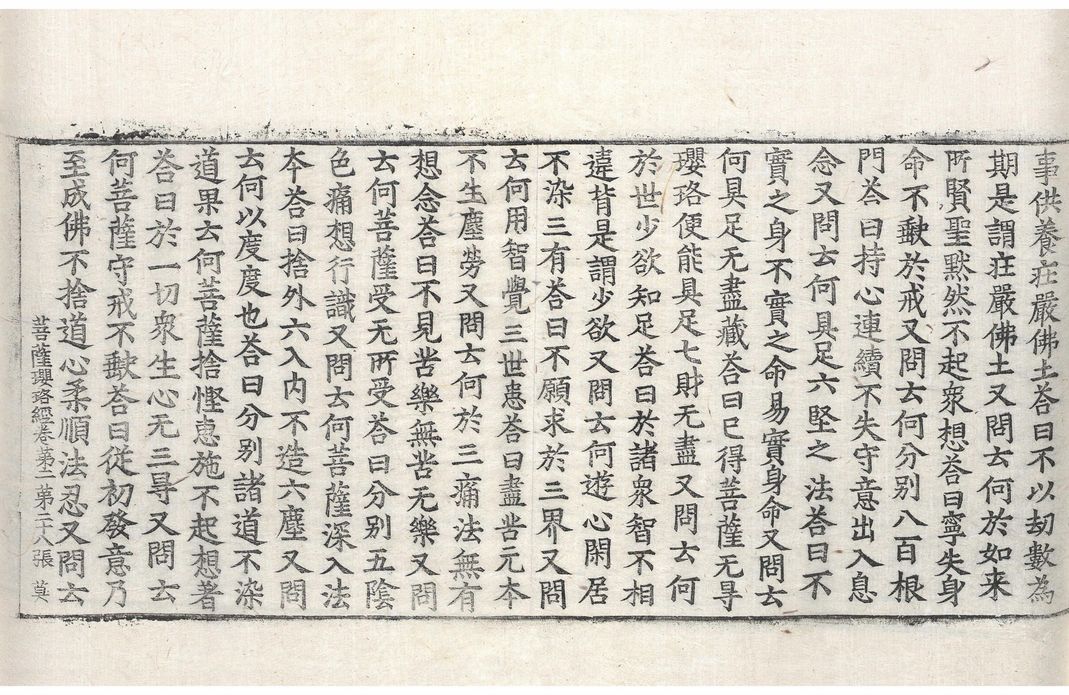 事供養庄嚴佛土荅曰不以劫數為
期是謂庄嚴佛土又問云何於如来
所賢聖默然不起衆想荅曰寧失身
命不㱁於戒又問云何分别八百根
門荅曰持心連續不失守意出入息
念又問云何具足六堅之法荅曰不
實之身不實之命易實身命又問云
何具足无盡藏荅曰已得菩薩无㝵
瓔珞便能具足七財无盡又問云何
於世少欲知足荅曰於諸衆智不相
違背是謂少欲又問云何遊心閑居
不染三有荅曰不願求於三界又問
云何用智覺三世恚荅曰盡苦元本
不生塵勞又問云何於三痛法無有
想念荅曰不見苦樂無苦无樂又問
云何菩薩受无所受荅曰分别五陰
色痛想行識又問云何菩薩深入法
本荅曰捨外六入内不造六塵又問
云何以度度也荅曰分别諸道不染
道果云何菩薩捨慳惠施不起想著
荅曰於一切衆生心无三㝵又問云
何菩薩守戒不㱁荅曰從初發意乃
至成佛不捨道心柔順法忍又問云
菩薩瓔珞經卷第二第二十八張 莫